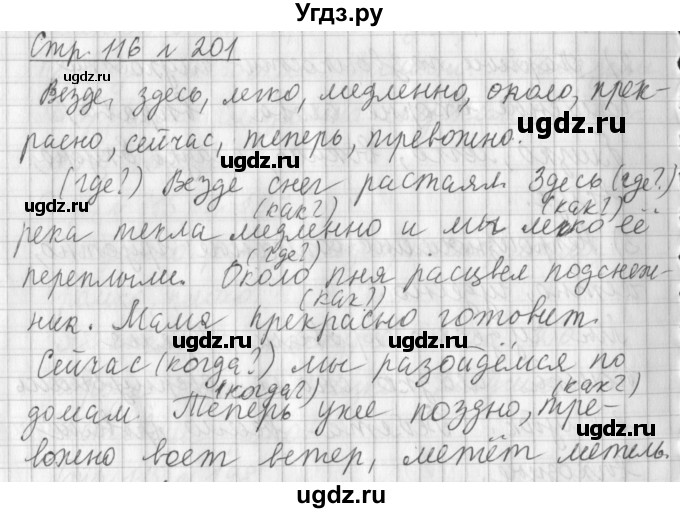 Угдз.ру
Стр. 116 г 201
Везде, здесь, легко, медленно, около, прек-
расно, сейчас, теперь, тревожно.
(где?) Везде снег растаял. Здесь (где?)
(как?) (как?)
река текла медленно и мы легко её
(где?)
переплыли. Около пня расцвел подснеж-
(как?)
ник. Мама прекрасно готовит.
Сейчас (когда?) мы разойдёмся по
(когда?) (как?)
домам. Теперь уже поздно, тре-
вожно воет ветер, метёт метель.
ugdz.ru
ugdz.ru
ugdz.ru
ugdz.ru
ugdz.ru
ugdz.ru
ugdz.ru
ugdz.ru
ugdz.ru
ugdz.ru
ugdz.ru